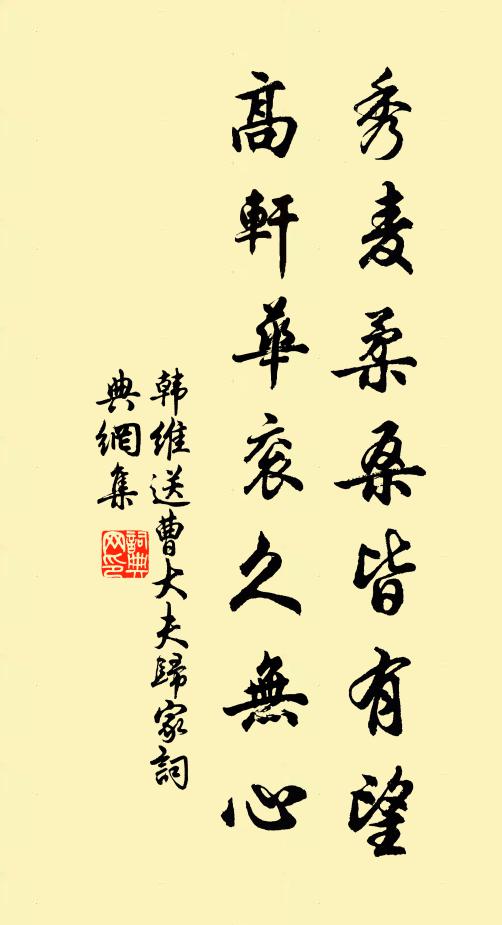 秀麦柔桑皆有望
高軒華衮久無心
韩維送曹大夫歸家詞
典網集
詞典
网印